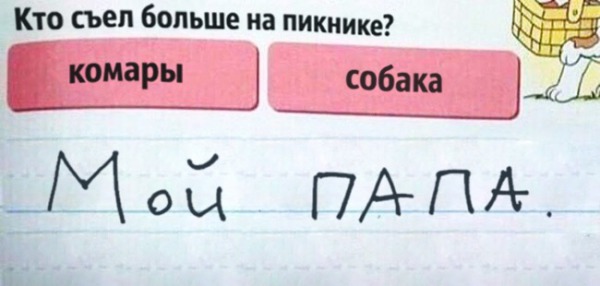 Кто съел больше на пикнике?
комары собака
Мой ПАПА.